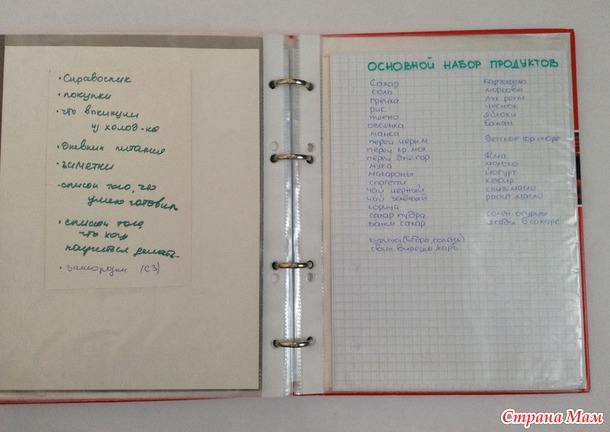 • Справочник
• покупки
• что выкинули
из холод-ка
• Дневник питания
• заметки
• список того, что
умею готовить
• список того,
что хочу
научиться делать
• заморозки (СЗ)
ОСНОВНОЙ НАБОР ПРОДУКТОВ
Сахар
соль
гречка
рис
пшено
овсянка
манка
перец черн.м
перец кр. мол
перец
мука
макароны
спагетти
чай черный
чай зелёный
корица
сахар пудра
ванил сахар
картофель
морковь
лук репч
чеснок
яблоки
банан
Детское пюре
молоко
йогурт
кефир
слив масло
раст масло
солен огурцы
ягоды в сахаре
курица (бёдра, голень)
свин вырезка
Страна Мам